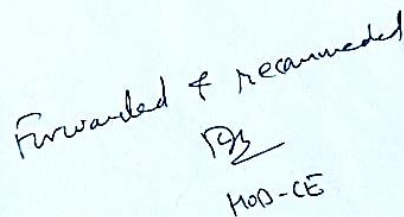 Forwarded & recommended
HOD-CE